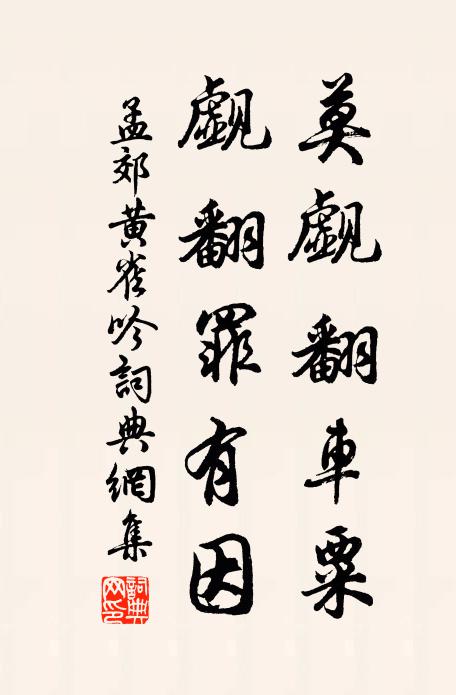 莫覷翻車粟
覷翻罪有因
孟郊黄雀吟詞典網集
詞典网印